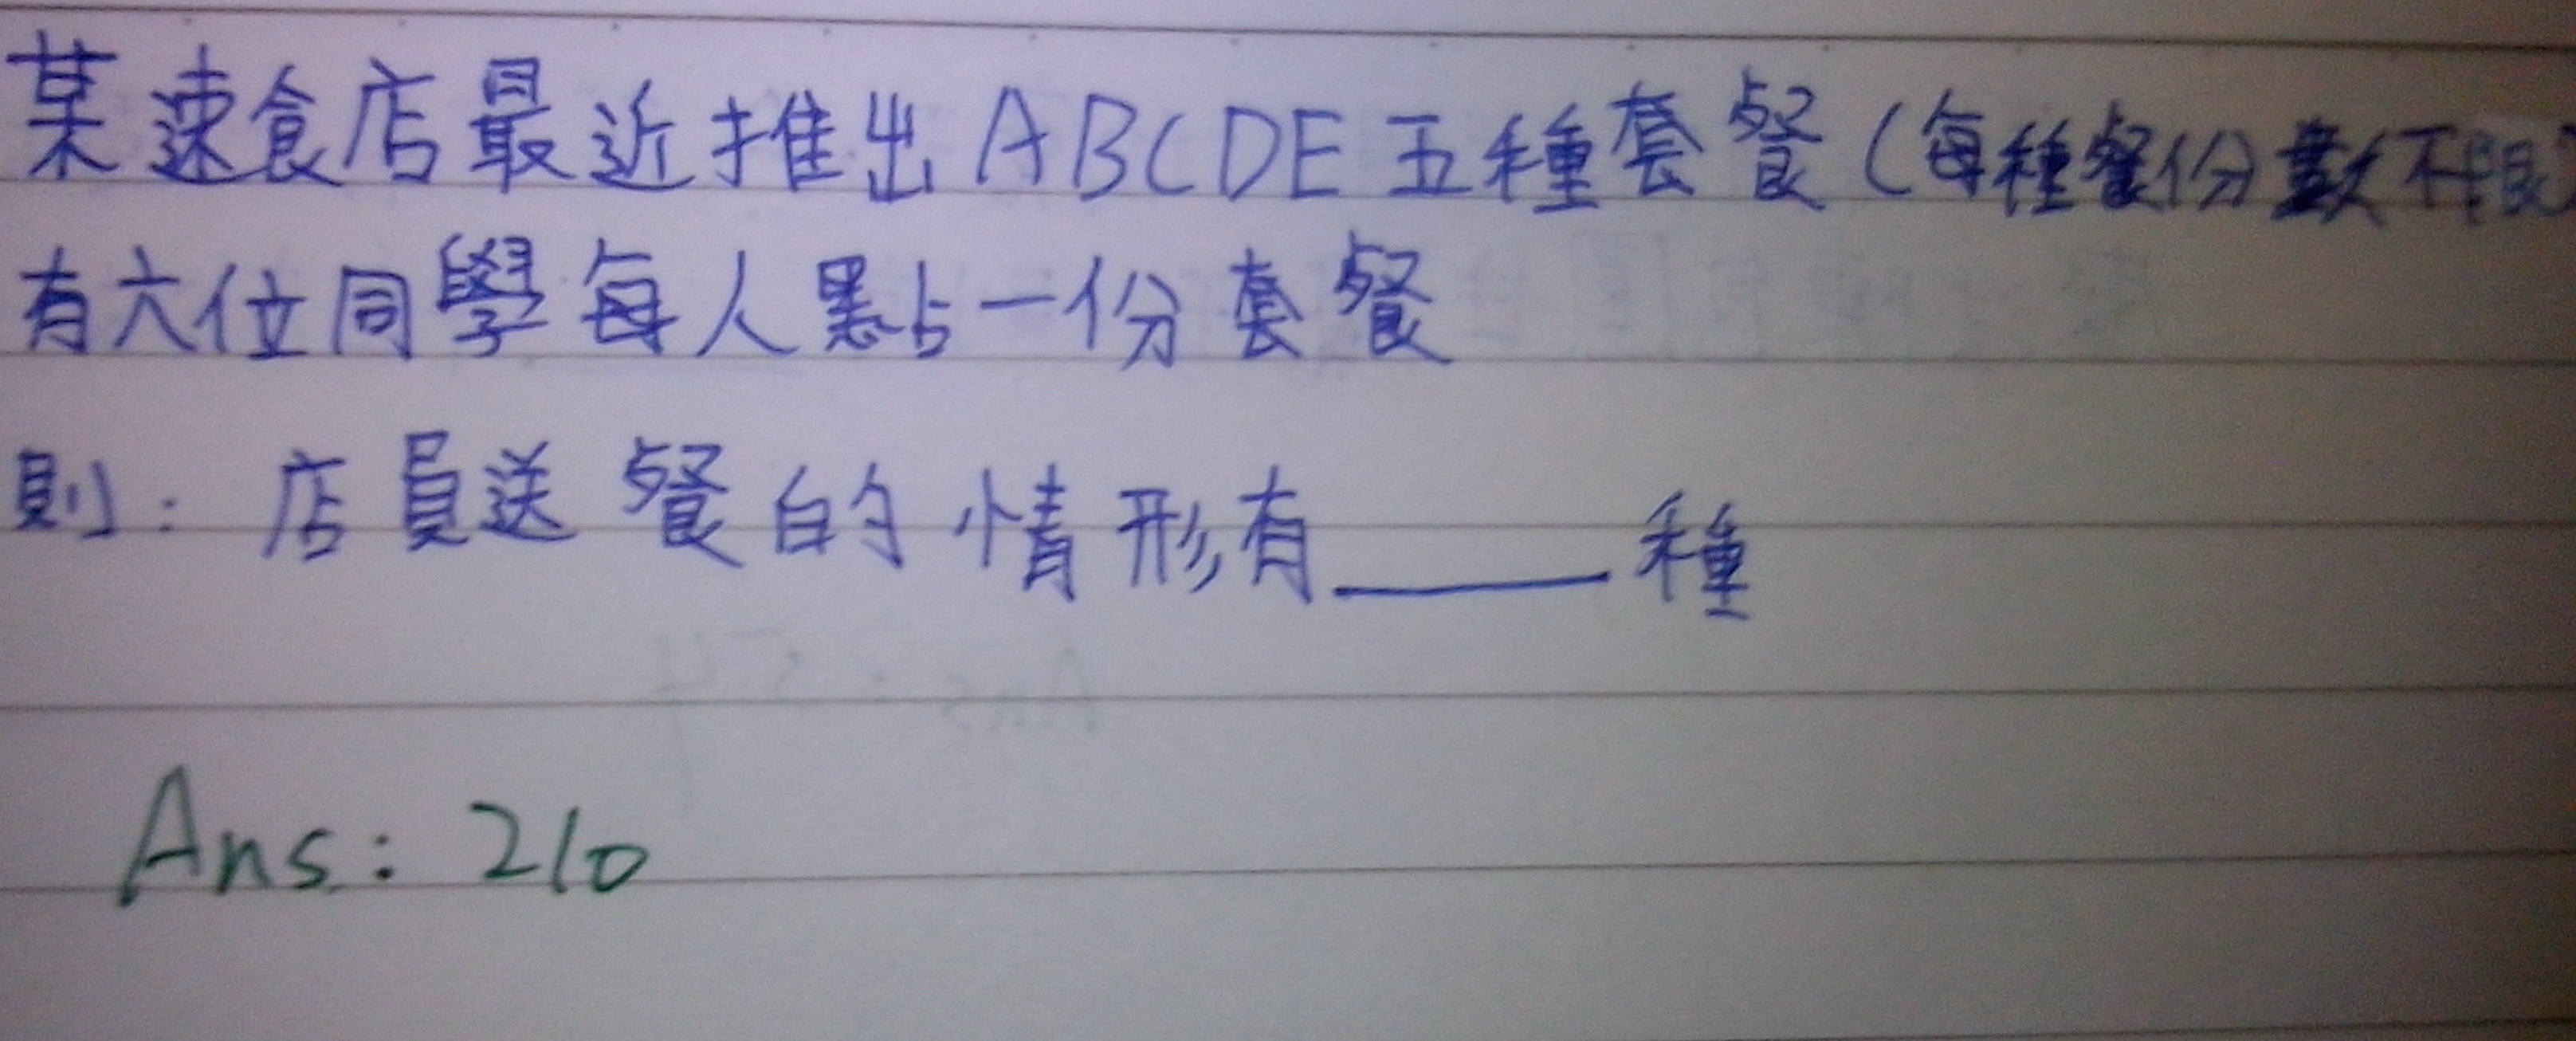 某速食店最近推出ABCDE五種套餐(每種餐份數不限)
有六位同學每人點一份套餐
則：店員送餐的情形有____種
Ans：210